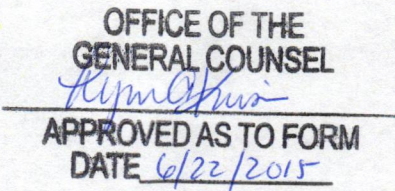 OFFICE OF THE
GENERAL COUNSEL
APPROVED AS TO FORM
DATE 6/22/2015